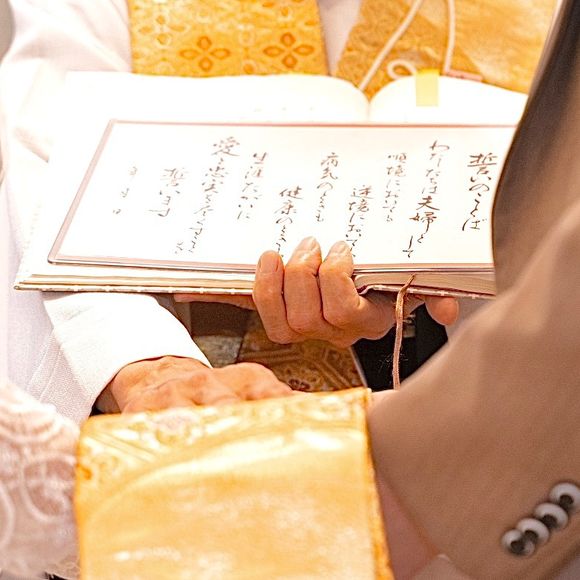 誓いのことば
わたしたちは夫婦として
順境においても
逆境においても
病気のときも
健康のときも
生涯たがいに
愛と忠実を尽くすことを
誓います
年 月 日